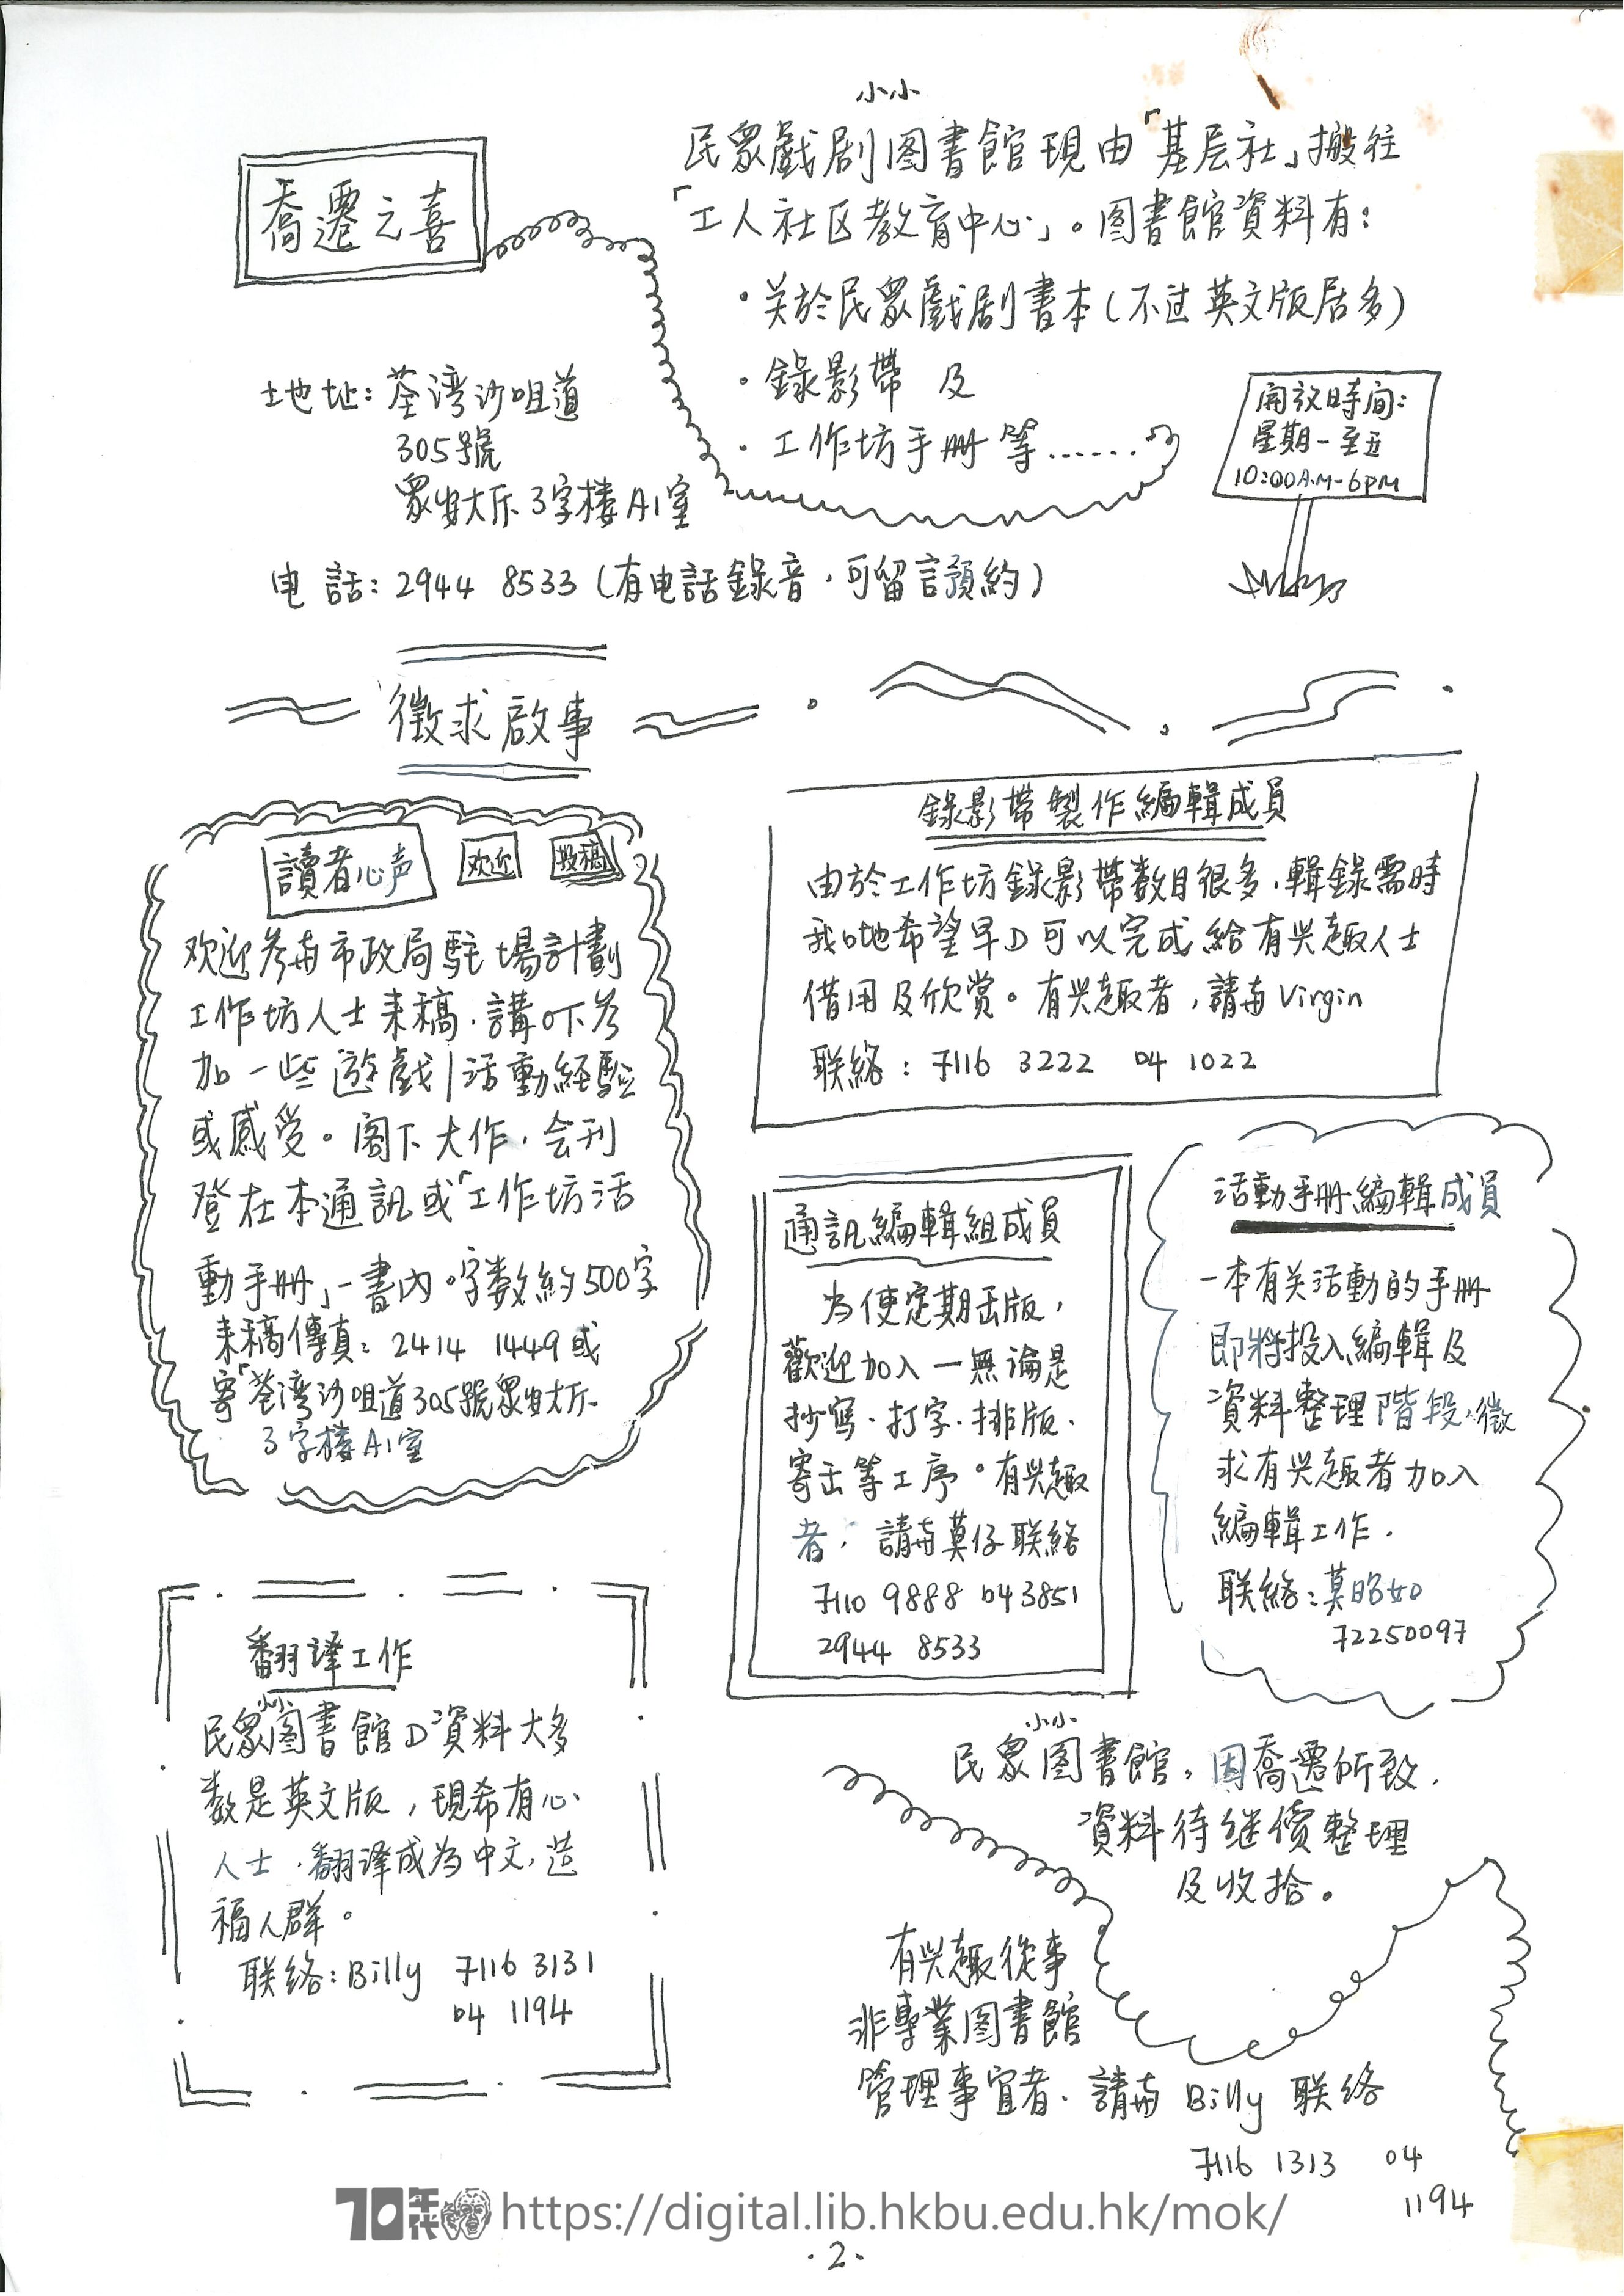 喬遷之喜
小小
民眾戲剧图書館現由「基层社」搬往
「工人社区教育中心」。图書館資料有：
・关於民眾戲剧書本（不过英文版居多）
・錄影帶 及
・工作坊手冊 等……
地址：荃湾沙咀道
305號
眾安大厦 3字楼 A1室
开放時间：
星期一至五
10:00A.M-6PM
电話：2944 8533（有电話錄音，可留言預約）
徵求啟事
讀者心声 欢迎 投稿
欢迎参与市政局駐場計劃
工作坊人士来稿，講吓参
加一些遊戲/活動経験
或感受。阁下大作，会刊
登在本通訊或「工作坊活
動手冊」一書內。字数約500字
来稿傳真：2414 1449 或
寄「荃湾沙咀道305號眾安大厦
3字楼A1室
錄影帶製作編輯成員
由於工作坊錄影帶数目很多，輯錄需時
我哋希望早D可以完成給有兴趣人士
借用及欣赏。有兴趣者，請与Virgin
联絡：7116 3222 04 1022
通訊編輯組成員
為使定期出版，
歡迎加入－無論是
抄寫、打字、排版、
寄出等工序。有兴趣
者，請与莫仔联絡
7110 9888 04 3851
2944 8533
活動手冊編輯成員
一本有关活動的手冊
即將投入編輯及
資料整理階段，徵
求有兴趣者加入
編輯工作．
联絡：莫昭如
72250097
翻譯工作
小小
民眾图書館D資料大多
数是英文版，現希有心
人士，翻译成為中文，造
福人群。
联络：Billy 7116 3131
04 1194
小小
民眾图書館，因喬遷所致，
資料待继續整理
及收拾。
有兴趣從事
非專業图書館
管理事宜者，請与 Billy 联络
7116 1313 04
1194
70年代 https://digital.lib.hkbu.edu.hk/mok/
·2·